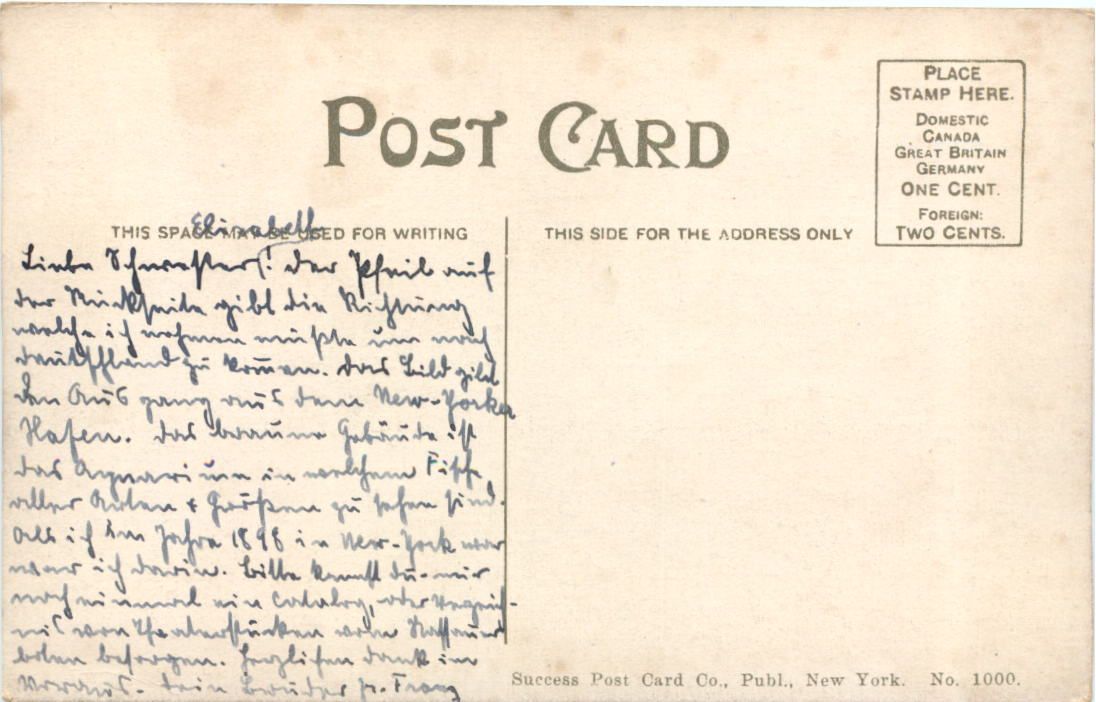 PLACE
STAMP HERE.
DOMESTIC
CANADA
GREAT BRITAIN
GERMANY
ONE CENT.
FOREIGN:
TWO CENTS.
POST CARD
THIS SPACE MAY BE USED FOR WRITING
THIS SIDE FOR THE ADDRESS ONLY
Elisabeth
Liebe Schwester! Der Pfeil auf
der Rückseite gibt die Richtung
welche ich nehmen müßte um nach
Deutschland zu kommen. Das Bild gibt
den Ausgang aus dem New-Yorker
Hafen. Das braune Gebäude ist
das Aquarium in welchem Fische
aller Arten & Größen zu sehen sind.
Als ich im Jahre 1898 in New-York war
war ich darin. Bitte kannst du mir
noch einmal ein Catalog, oder Verzeich-
nis von Theaterstücken vom Nassauer
boten besorgen. Herzlichen Dank im
Voraus. Dein Bruder Franz
Success Post Card Co., Publ., New York. No. 1000.